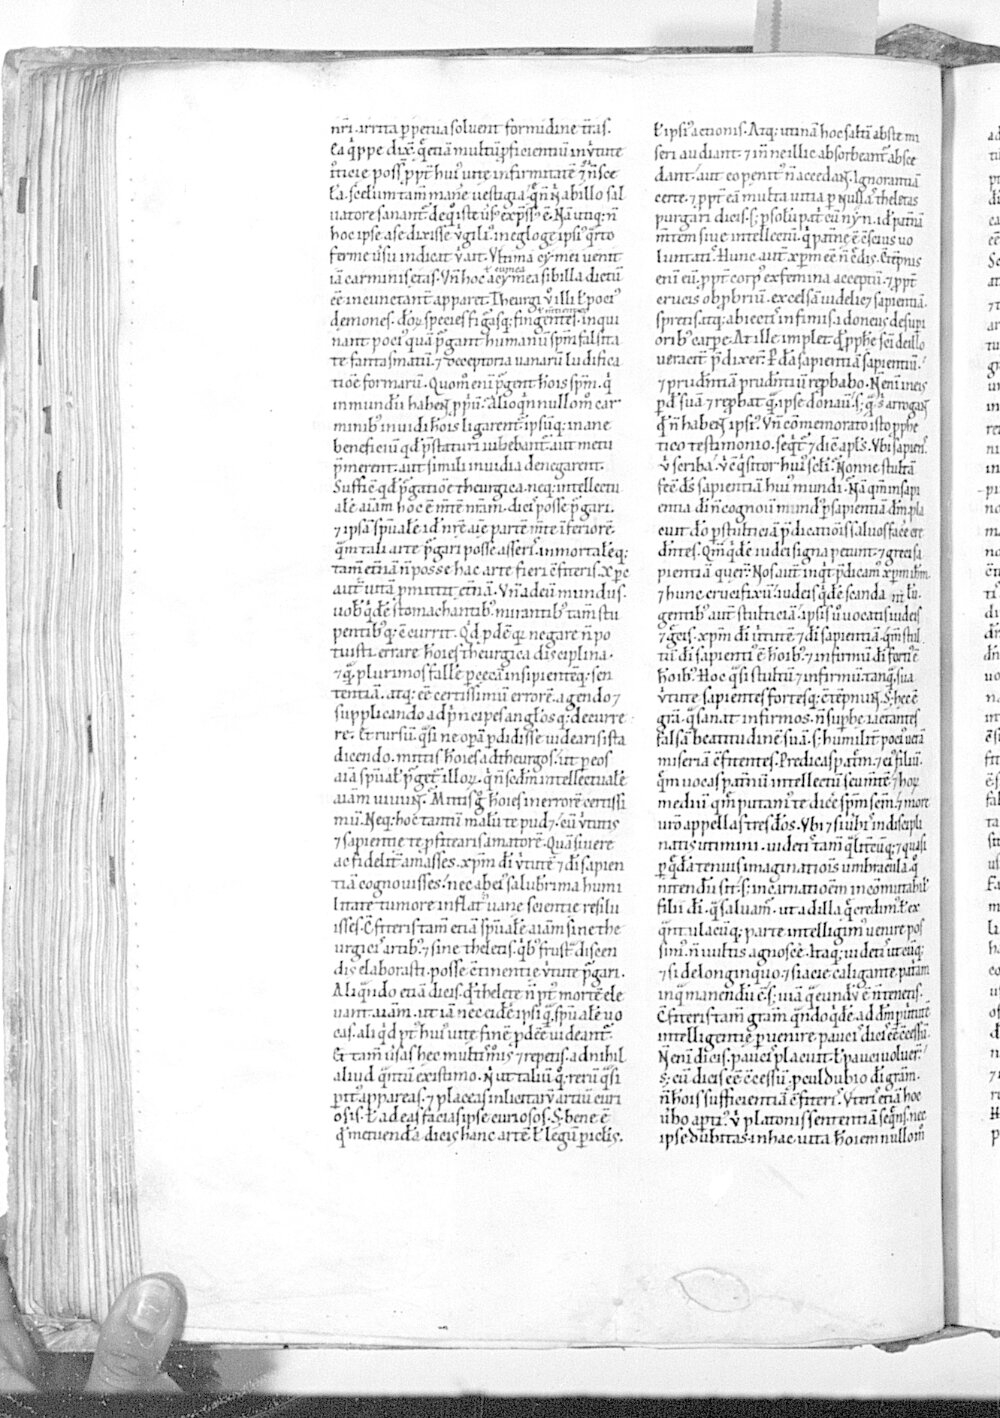 nr̄i. irrita ꝑpetua soluent formidine t̄ras.
Ea q̇ppe dix̄. q̄ etiā multū ꝓficientiū in v̓tute
iusticie poss̄. ꝓpt̄ hui᷒ uite infirmitatē ⁊ n̄ sce
ła. scelerum tam̄ manere uestigia. q̄ n̄ n̄ ab illo sal
uatore sanant̄. de q̊ iste ūs᷒ exp̄ss᷒ ē. Nā utiq; n̄
hoc ipse a se dixisse v̓gili᷒ in egloge ipsi᷒ q̊rto
ferme ūsu indicat ū ait. Vltima cymei uenit
iā carminis etas. Vn̄ hoc a cymea sibilla dictū
cumea
eē incunctant̄ apparet. Theurgi ū illi ł poci᷒
demones. deoꝝ species figasq; fingentes. inqui
nant poci᷒ quā purgant humanū sp̄m falsita
te fantasmatū. ⁊ deceptoria uanarū ludifica
tiōe formarū. Quom̄ eni p̄gent hōis sp̄m. q̇
inmundū habent ꝓp̄ū. Alioq̇n nullom̄ car
minib᷒ inuidi hōis ligarent̄. ipsūq; inane
beneficiū qd̓ p̄staturi uidebant̄. aut metu
p̄merent. aut simili inuidia denegarent.
Sufficit qd̓ p̄gatiōe theurgica. neq; intellectu
alē aīam hoc ē m̄te nr̄am. dicis posse p̄gari.
⁊ ipsā sp̄ualē id ē nr̄e aīe partē m̄te īferiorē
q̄m tali arte p̄gari posse asseris. inmortalē q;
tam̄ et̄nā n̄ posse hac arte fieri c̄fiteris. xp̄c
aut̄ uitā p̄mittit et̄nā. Vn̄ ad eū mundus.
uob᷒ q̇dē stomachantib᷒ mirantib᷒ tam̄ stu
pentib᷒ q; c̄currit. Qd̓ p̄dē q; negare n̄ po
tuisti errare hōies theurgica disciplina.
⁊ q̄ plurimos fallē ꝑ cecā insipientēq; sen
tentiā. atq; eē certissimū errorē. agendo ⁊
supplicando ad p̄ncipes angl̄osq; decurre
re. Et rursū. q̄si ne operā p̄didisse uidearis ista
dicendo. mittis hōies ad theurgos. ut ꝑ eos
aīa sp̄uał p̄get̄ illoꝝ. q̇ n̄ sed̄m intellectualē
aīam uiuunt. Mittis g̊ hōies in errorē certissi
mū. Neq; hoc tantū malū te pudet. cū v̓tutis
⁊ sapientie te ꝓfitearis amatorē. Quā si uere
ac fidelit̄ amasses. xp̄m dī v̓tutē ⁊ dī sapien
tiā cognouisses. nec ab ei᷒ saluberima humi
litate tumore inflat᷒ uane scientie resilu
isses. C̄fiteris tam̄ etiā sp̄ualē aīam sine the
urgicis artib᷒ ⁊ sine theletis. q̇b᷒ frustra discen
dis elaborasti. posse c̄tinentie v̓tute p̄gari.
Aliqn̄do etiā dicis. qd̓ thelete n̄ p᷒t mortē ele
uant aīam. ut iā nec eidē ipsi q̄ sp̄ualē uo
cas. aliqd̓ p᷒t hui᷒ uite finē p̄dēē uideant̄.
Et tam̄ ūsas hec multimodis ⁊ repetis. ad nihil
aliud q̄ntū existimo. n̄ ut taliū q; rerū q̄si
ꝑit᷒ appareas. ⁊ placeas inlicitarū artiū curi
osis. ł ad eas facias ipse curiosos. S; bene ē
q̓ metuendā dicis hanc artē ł legū ꝑiclis.
ł ipsi᷒ actionis. Atq; utinā hoc saltī abs te mi
seri audiant. ⁊ inde ne illic absorbeant̄ absce
dant. aut eo penit᷒ n̄ accedant. Ignorantiā
certe. ⁊ ꝓpt̄ eā multa uitia ꝑ nullas theletas
purgari dicis. s; ꝑ solū pat̄cū nȳn. id ē pat̄nā
m̄tem siue intellectū. q̇ pat̄ne ē c̄scius uo
luntati᷒. Hunc aut̄ xp̄m eē n̄ c̄dis. Ct̄ēpnis
enī eū. ꝓpt̄ corp᷒ ex femina acceptū. ⁊ ꝓpt̄
crucis obprobriū. excelsā uidelic̄ sapientiā.
spretis atq; abiectis infimis idoneus de supi
orib᷒ carpe. At ille implet qd̓ ꝓphe sc̄i de illo
ueracit̄ p̄dixer̄. Perdā sapientiā sapientiū.
⁊ prudentiā prudentiū reprobabo. Nō enī in eis
ꝑdit suā ⁊ reprobat q̄ ipse donauit. s; q̄ sī arrogant
q̇ n̄ habent ipsi᷒. Vn̄ cōmemorato isto ꝓphe
tico testimonio. seq̇t̄ ⁊ dic̄ apl̄s. Vbi sapiens.
ubi scriba. ubi c̄q̇sitor hui᷒ sc̄li. Nonne stultā
fec̄ ds̄ sapientiā hui᷒ mundi. Nā qm̄ in sapi
entia dī n̄ cognouit mund᷒ ꝑ sapientiā dm̄. pla
cuit dō ꝑ stulticiā p̄dicatiōis saluos facere cre
dn̄tes. Qm̄ q̇dē iudei signa petunt. ⁊ greci sa
pientiā querunt. Nos aut̄ inq̇t p̄dicam᷒ xp̄m ihm̄.
⁊ hunc crucifixū. iudeis q̇dē scandalū.
gentib᷒ aut̄ stulticiā. ipsis ū uocatis iudeis
⁊ grecis. xp̄m dī v̓tutē ⁊ dī sapientiā. qm̄ stul
tū dī sapienti᷒ ē hōib᷒. ⁊ infirmū dī forti᷒ ē
hōib᷒. Hoc q̄si stultū ⁊ infirmū. tanq̄ sua
v̓tute sapientes fortesq; c̄tēpnunt. S; hec ē
gr̄a. q̄ sanat infirmos. n̄ suꝑbe iactantes
falsā beatitudinē suā. s; humilit̄ poci᷒ uerā
miseriā c̄fitentes. Predicas pat̄m. ⁊ ei᷒ filiū.
q̄m uocas pat̄nū intellectū seu m̄te. ⁊ hoꝝ
mediū. q̄m putam᷒ te dice sp̄m sc̄m. ⁊ more
ur̄o appellas tres dōs. Vbi ⁊ si ūbis indiscipli
natis utimini. uidetis tam̄ q̄litcūq; ⁊ quasi
ꝑ q̄dā tenuis imaginatiōis umbracula. q̊
nitendū sit. s; incarnatiōem incōmutabil᷒
filii dī. q̄ saluam᷒. ut ad illa q̄ credim᷒. ł ex
q̄ntulacūq; parte intelligim᷒ uenire pos
sim᷒. n̄ uultis agnoscē. Itaq; uidetis utcūq;
⁊ si de longinquo. ⁊ si acie caligante. patriam
in qua manendū ē. s; uiā qua eundū ē n̄ tenetis.
C̄fiteris tam̄ grām. qn̄doq̇dē ad dm̄ ꝑ v̓tutē
intelligentie ꝑuenire. paucis dicis eē c̄cessū.
Nō enī dicis. paucis placuit. ł pauci uoluer̄.
s; cū dicis eē c̄cessū. ꝓculdubio dī grām.
n̄ hōis sufficientiā c̄fiteris. Vteris etiā hoc
ūbo apti᷒. ubi platonis sententiā seq̄ns. nec
ipse dubitas. in hac uita hōiem nullom̄